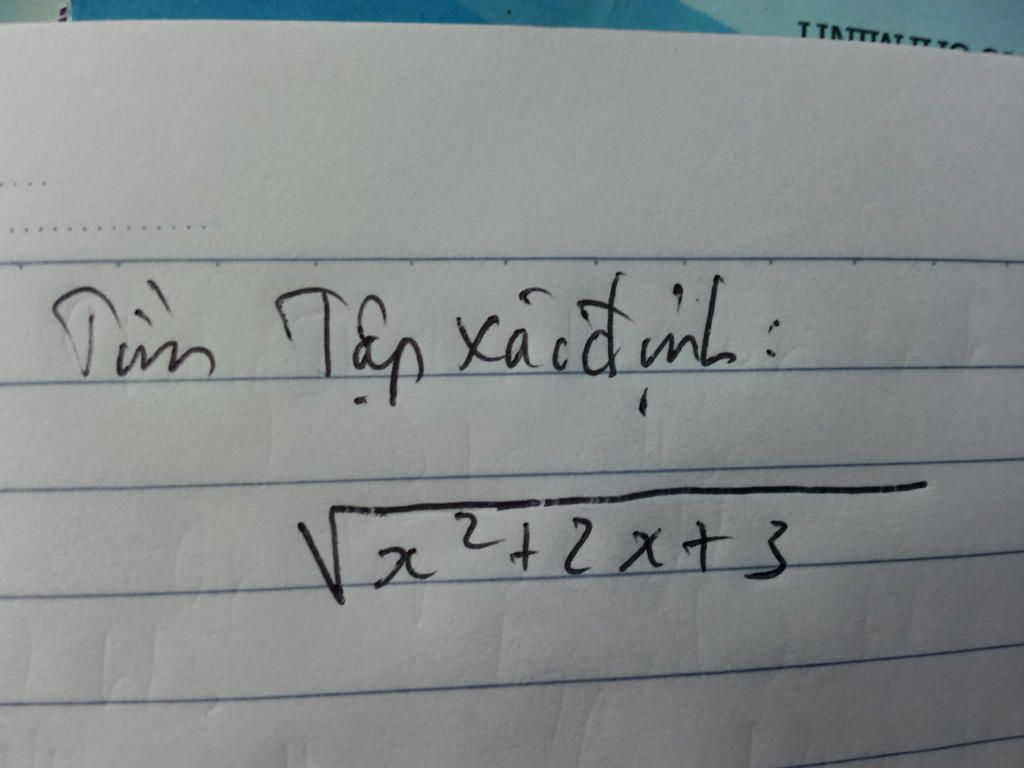 Tìm Tập xác định:
\sqrt{x^2+2x+3}